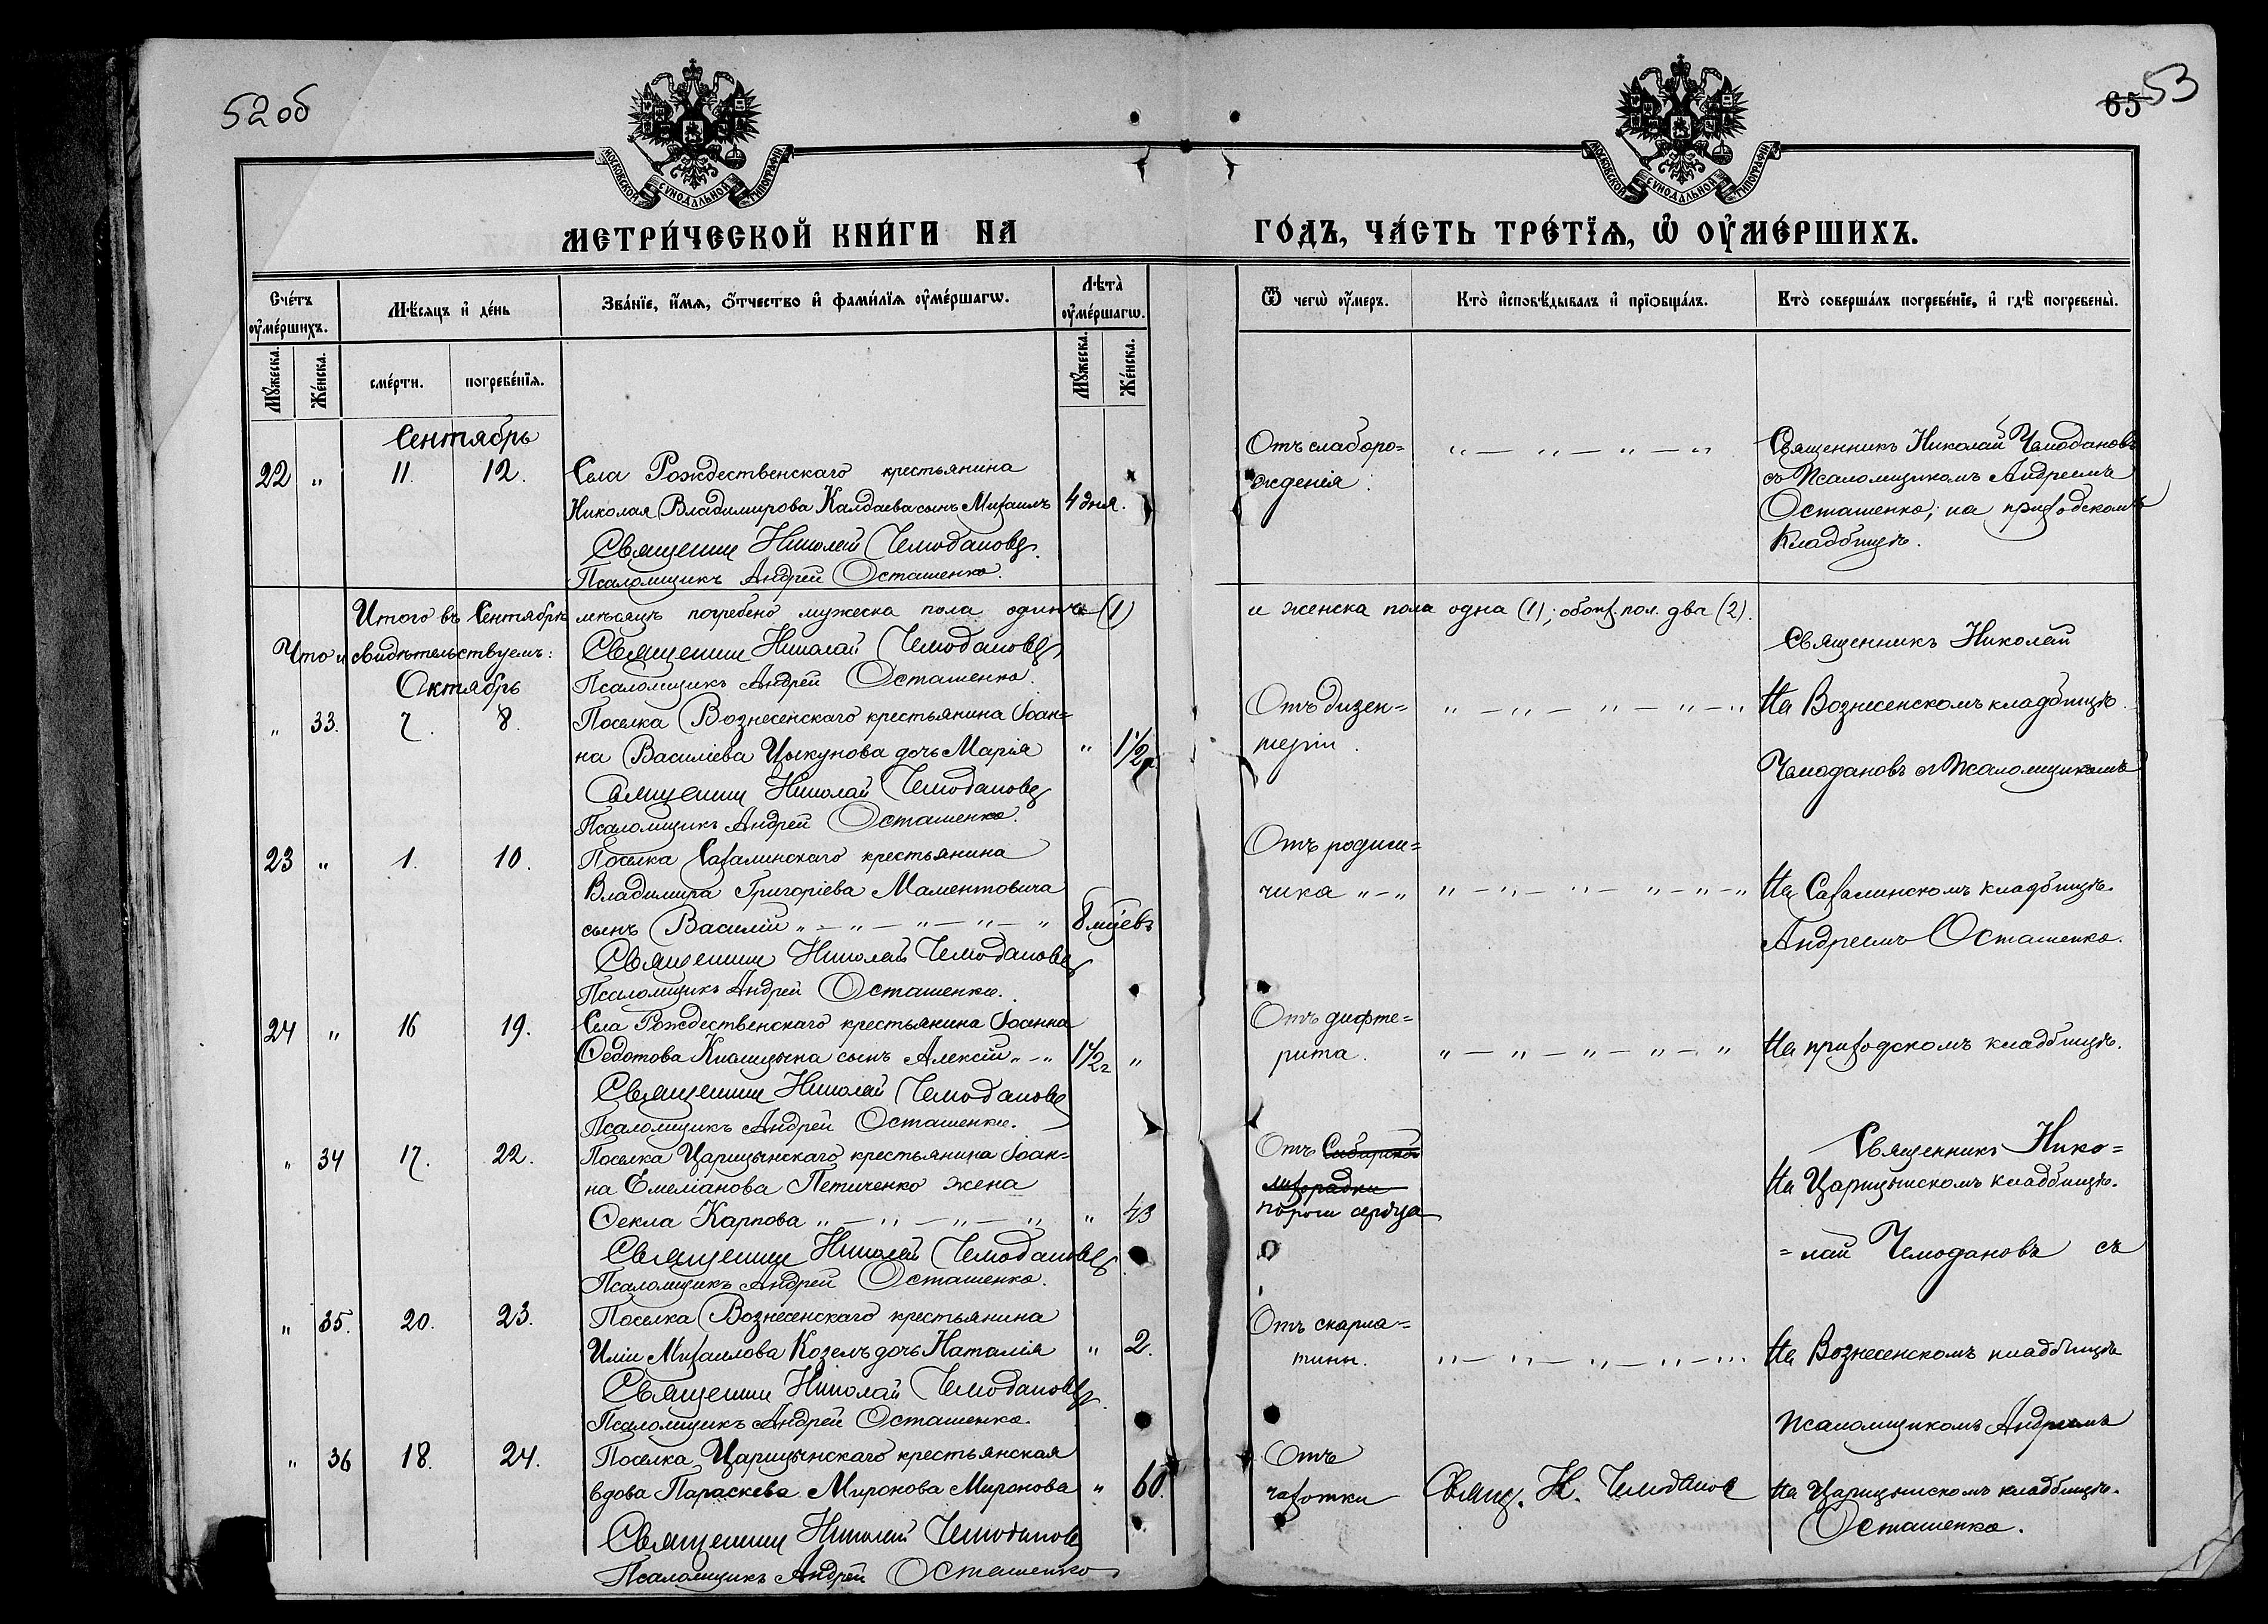 52 об
65 53
МОСКОВСКОЙ СѴНОДАЛЬНОЙ ТИПОГРАФІИ
МОСКОВСКОЙ СѴНОДАЛЬНОЙ ТИПОГРАФІИ
МЕТРИ́ЧЕСКОЙ КНИ́ГИ НА ГО́ДЪ, ЧА́СТЬ ТРЕ́ТЇѦ, Ѡ҆ ОУ҆МЕ́РШИХЪ.
Сче́тъ оу҆ме́ршихъ.
Мѣ́сяцъ и҆ де́нь
Зва́нїе, и҆́мѧ, ѻ҆́тчество и҆ фами́лїѧ оу҆ме́ршагѡ.
Лѣ́та оу҆ме́ршагѡ.
Ѿ чегѡ̀ оу҆́меръ.
Кто̀ и҆сповѣ́дывалъ и҆ прїѻбща́лъ.
Кто̀ соверша́лъ погребе́нїе, и҆ гдѣ̀ погребены̀.
Мꙋ́жеска. Же́нска. сме́рти. погребе́нїѧ. Мꙋ́жеска. Же́нска.
Сентябрь
22 " 11. 12. Села Рождественскаго крестьянина
Николая Владимирова Калдаева сынъ Михаилъ 4 дня.
Священник Николай Чемодановъ
Псаломщикъ Андрей Осташенко.
Отъ слаборо=
жденія.
" — " — " — "
Священникъ Николай Чемодановъ
съ Псаломщикомъ Андреемъ
Осташенко, на приходскомъ
кладбищѣ.
Итого въ Сентябрѣ мѣсяцѣ погребено мужеска пола одинъ (1) и женска пола одна (1); обоих. пол. два (2).
Что и свидѣтельствуемъ: Священник Николай Чемодановъ
Псаломщикъ Андрей Осташенко.
Священникъ Николай
Октябрь
" 33. 7. 8. Поселка Вознесенскаго крестьянина Іоан=
на Василіева Цыкунова дочь Марія " 1½ г.
Священник Николай Чемодановъ
Псаломщикъ Андрей Осташенко.
Отъ дизен=
теріи.
" — " — " — " — "
На Вознесенскомъ кладбищѣ.
Чемодановъ съ Псаломщикомъ
23 " 1. 10. Поселка Сахалинскаго крестьянина
Владимира Григоріева Маментовича
сынъ Василій " — " — " — " — " 8 мцевъ
Священник Николай Чемодановъ
Псаломщикъ Андрей Осташенко.
Отъ родими=
чика " — "
" — " — " — " — " — "
На Сахалинскомъ кладбищѣ.
Андреемъ Осташенко.
24 " 16 19. Села Рождественскаго крестьянина Іоанна
Ѳедотова сынъ Алексій " — " 1½ г "
Священник Николай Чемодановъ
Псаломщикъ Андрей Осташенко.
Отъ дифте=
рита.
" — " — " — " — "
На приходскомъ кладбищѣ.
" 34 17. 22. Поселка Царицынскаго крестьянина Іоан=
на Емеліанова Петиченко жена
Ѳекла Карпова " — " — " — " " 43
Священник Николай Чемодановъ
Псаломщикъ Андрей Осташенко.
Отъ Сибирской
лихорадки
порока сердца
Священникъ Нико=
На Царицынскомъ кладбищѣ.
=лай Чемодановъ съ
" 35. 20. 23. Поселка Вознесенскаго крестьянина
Иліи Михаилова Козелъ дочь Наталія " 2.
Священник Николай Чемодановъ
Псаломщикъ Андрей Осташенко.
Отъ скарла=
тины.
" — " — " — " — "
На Вознесенскомъ кладбищѣ
Псаломщикомъ Андреемъ
" 36 18. 24. Поселка Царицынскаго крестьянская
вдова Параскева Миронова Миронова " 60.
Священник Николай Чемодановъ
Псаломщикъ Андрей Осташенко
Отъ
чахотки
Свящ. Н. Чемодановъ
На Царицынскомъ кладбищѣ.
Осташенко.